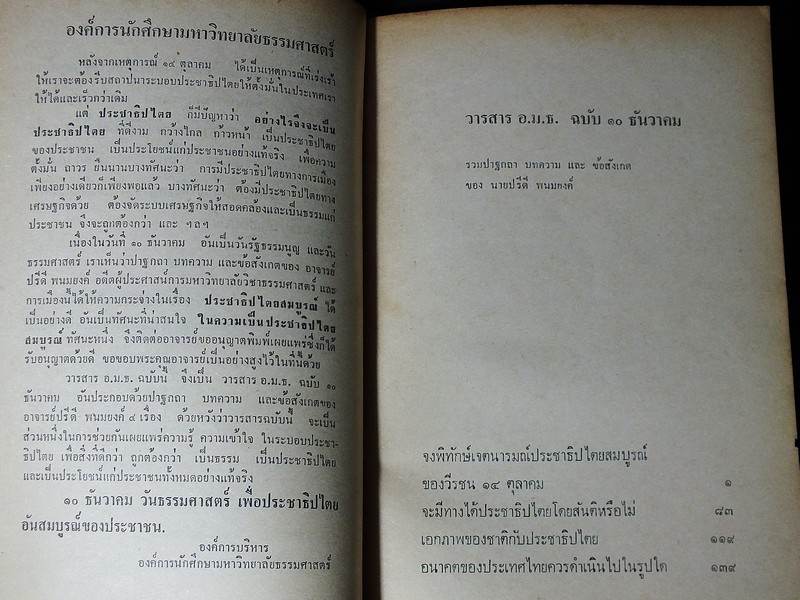 องค์การนักศึกษามหาวิทยาลัยธรรมศาสตร์
หลังจากเหตุการณ์ ๑๔ ตุลาคม ได้เป็นเหตุการณ์ที่เร่งเร้า
ให้เราจะต้องรีบสถาปนาระบอบประชาธิปไตยให้ตั้งมั่นในประเทศเรา
ให้ได้และเร็วกว่าเดิม
แต่ ประชาธิปไตย ก็มีปัญหาว่า อย่างไรจึงจะเป็น
ประชาธิปไตย ที่ดีงาม กว้างไกล ก้าวหน้า เป็นประชาธิปไตย
ของประชาชน เป็นประโยชน์แก่ประชาชนอย่างแท้จริง เพื่อความ
ตั้งมั่น ถาวร ยืนนานบางทัศนะว่า การมีประชาธิปไตยทางการเมือง
เพียงอย่างเดียวก็เพียงพอแล้ว บางทัศนะว่า ต้องมีประชาธิปไตยทาง
เศรษฐกิจด้วย ต้องจัดระบบเศรษฐกิจให้สอดคล้องและเป็นธรรมแก่
ประชาชน จึงจะถูกต้องกว่า และ ฯลฯ
เนื่องในวันที่ ๑๐ ธันวาคม อันเป็นวันรัฐธรรมนูญ และวัน
ธรรมศาสตร์ เราเห็นว่าปาฐกถา บทความ และข้อสังเกตของ อาจารย์
ปรีดี พนมยงค์ อดีตผู้ประศาสน์การมหาวิทยาลัยวิชาธรรมศาสตร์ และ
การเมืองนี้ได้ให้ความกระจ่างในเรื่อง ประชาธิปไตยสมบูรณ์ ได้
เป็นอย่างดี อันเป็นทัศนะที่น่าสนใจ ในความเป็นประชาธิปไตย
สมบูรณ์ ทัศนะหนึ่ง จึงติดต่ออาจารย์ขออนุญาตพิมพ์เผยแพร่ซึ่งก็ได้
รับอนุญาตด้วยดี ขอขอบพระคุณอาจารย์เป็นอย่างสูงไว้ในที่นี้ด้วย
วารสาร อ.ม.ธ. ฉบับนี้ จึงเป็น วารสาร อ.ม.ธ. ฉบับ ๑๐
ธันวาคม อันประกอบด้วยปาฐกถา บทความ และข้อสังเกตของ
อาจารย์ปรีดี พนมยงค์ ๔ เรื่อง ด้วยหวังว่าวารสารฉบับนี้ จะเป็น
ส่วนหนึ่งในการช่วยกันเผยแพร่ความรู้ ความเข้าใจ ในระบอบประชา-
ธิปไตย เพื่อสิ่งที่ดีกว่า ถูกต้องกว่า เป็นธรรม เป็นประชาธิปไตย
และเป็นประโยชน์แก่ประชาชนทั้งหมดอย่างแท้จริง
๑๐ ธันวาคม วันธรรมศาสตร์ เพื่อประชาธิปไตย
อันสมบูรณ์ของประชาชน.
องค์การบริหาร
องค์การนักศึกษามหาวิทยาลัยธรรมศาสตร์
วารสาร อ.ม.ธ. ฉบับ ๑๐ ธันวาคม
รวมปาฐกถา บทความ และ ข้อสังเกต
ของ นายปรีดี พนมยงค์
จงพิทักษ์เจตนารมณ์ประชาธิปไตยสมบูรณ์
ของวีรชน ๑๔ ตุลาคม ๑
จะมีทางได้ประชาธิปไตยโดยสันติหรือไม่ ๘๓
เอกภาพของชาติกับประชาธิปไตย ๑๑๙
อนาคตของประเทศไทยควรดำเนินไปในรูปใด ๑๓๙